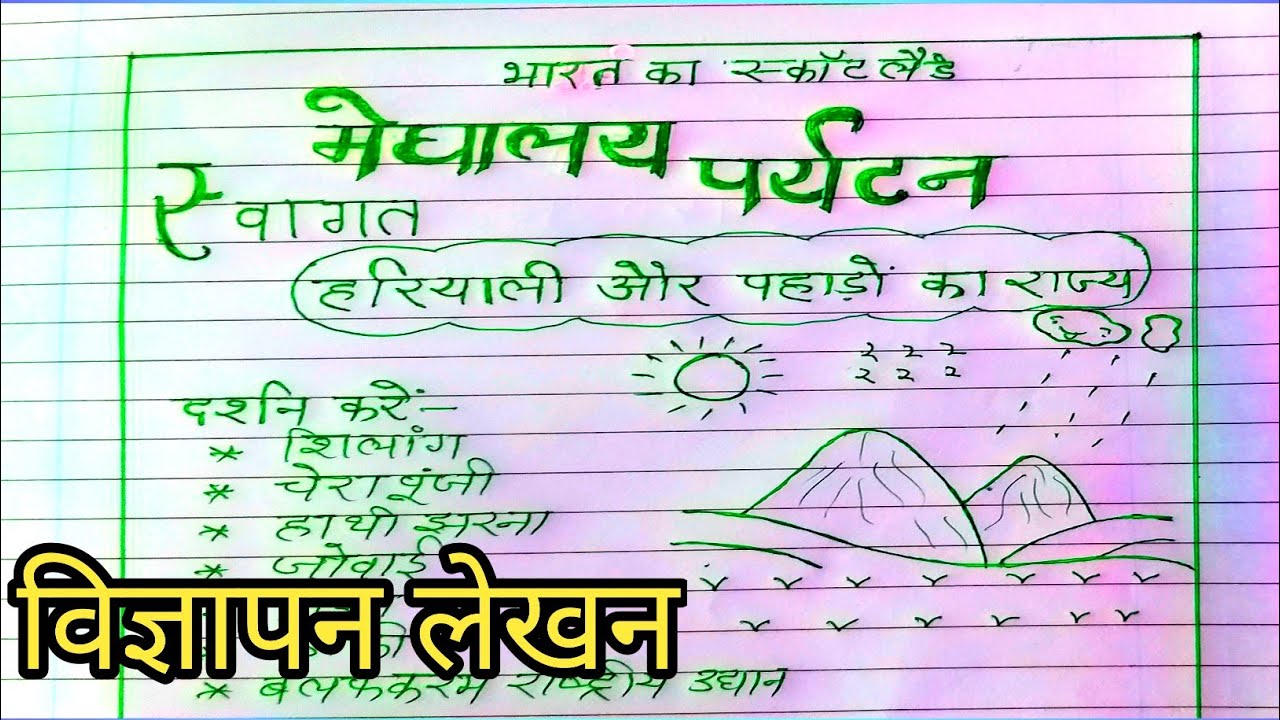 भारत का स्कॉटलैंड
मेघालय पर्यटन
स्वागत
हरियाली और पहाड़ों का राज्य
दर्शन करें:-
* शिलांग
* चेरापूंजी
* हाथी झरना
* जोवाई
* राष्ट्रीय उद्यान
विज्ञापन लेखन